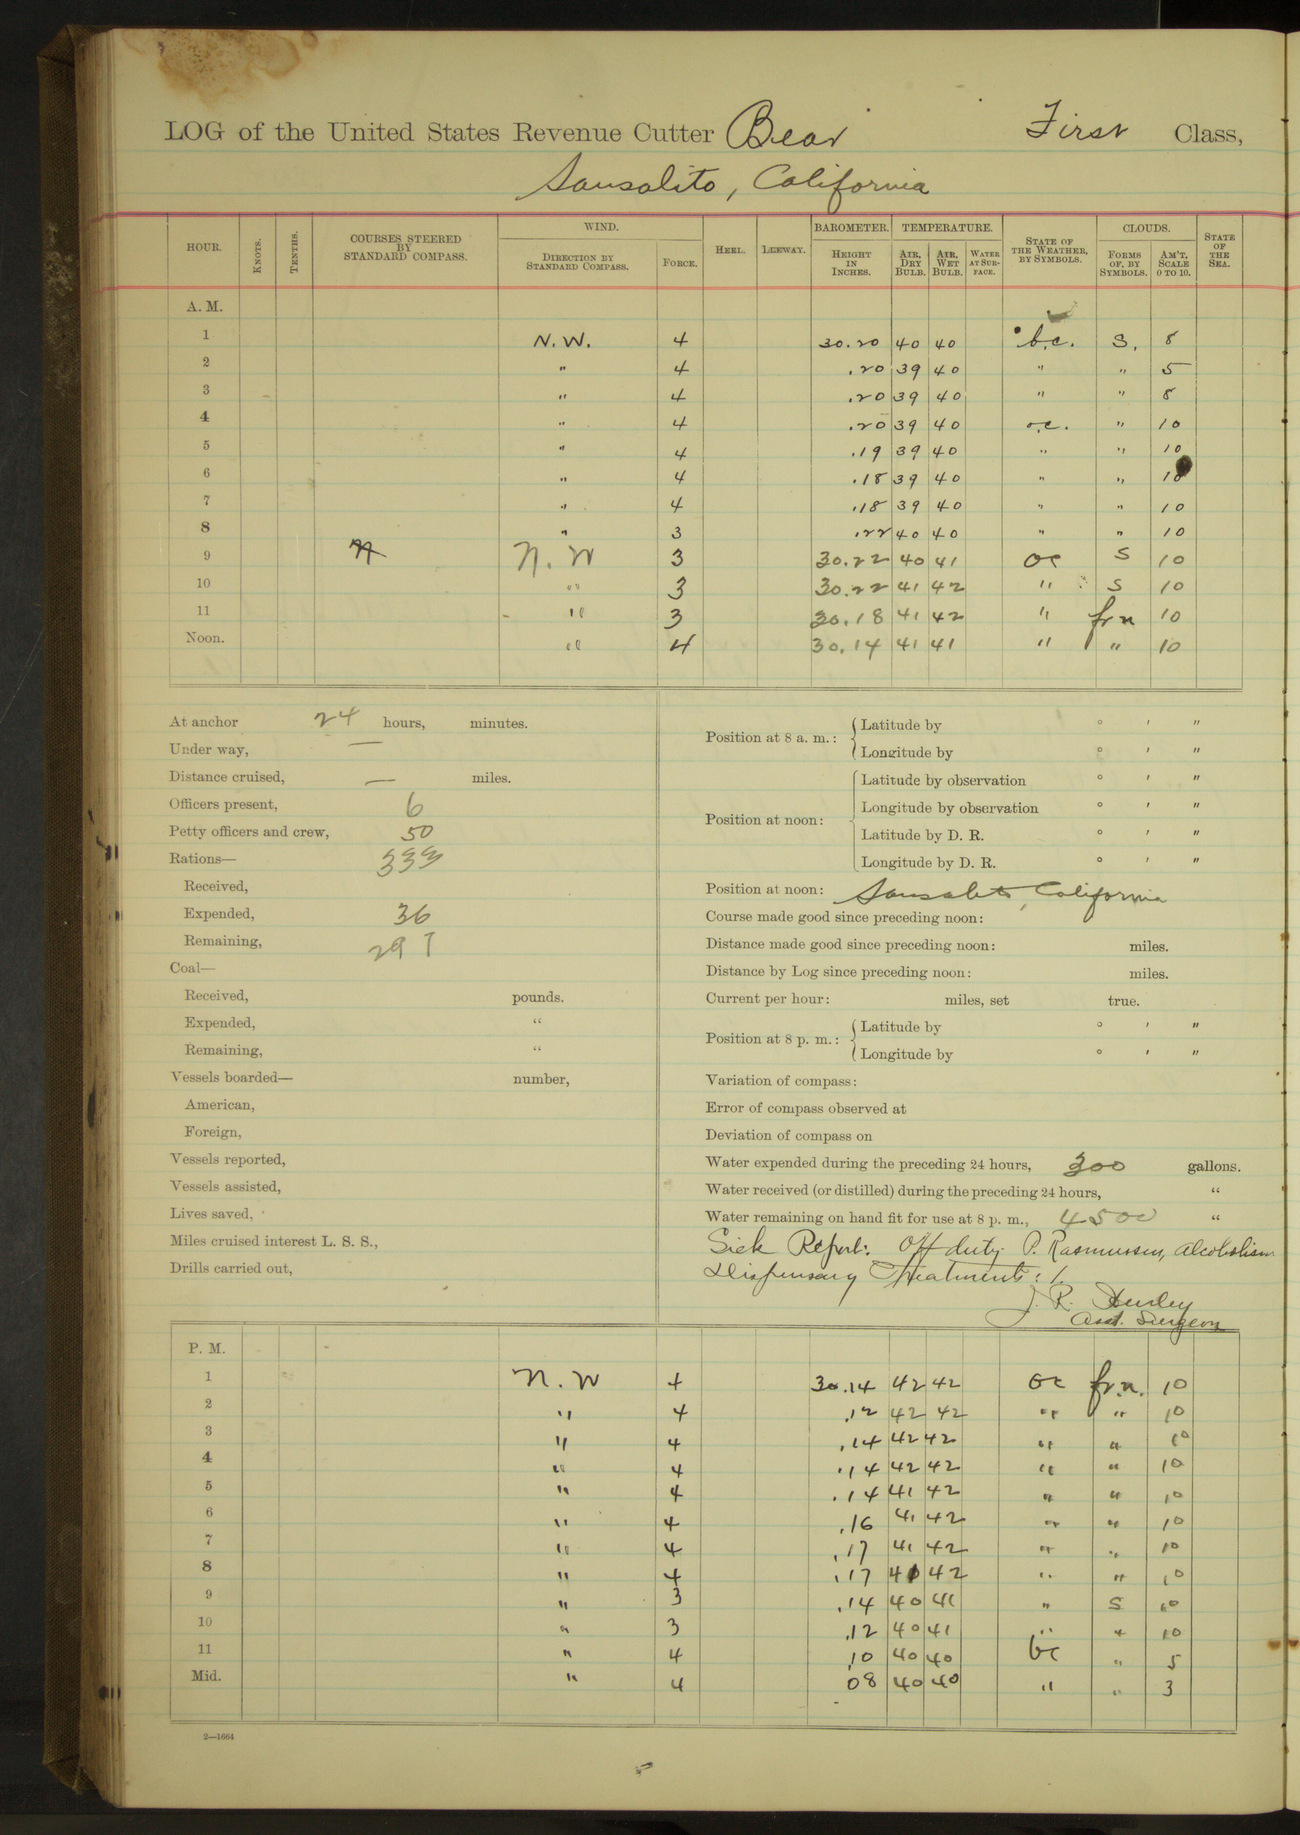 LOG of the United States Revenue Cutter Bear First Class,
Sausalito, California
HOUR. KNOTS. TENTHS. COURSES STEERED BY STANDARD COMPASS. WIND. DIRECTION BY STANDARD COMPASS. FORCE. HEEL. LEEWAY. BAROMETER. HEIGHT IN INCHES. TEMPERATURE. AIR, DRY BULB. AIR, WET BULB. WATER AT SURFACE. STATE OF THE WEATHER, BY SYMBOLS. CLOUDS. FORMS OF, BY SYMBOLS. AM'T, SCALE 0 TO 10. STATE OF THE SEA.
A. M.
1 N.W. 4 30.20 40 40 b.c. S. 8
2 " 4 .20 39 40 " " 5
3 " 4 .20 39 40 " " 8
4 " 4 .20 39 40 o.c. " 10
5 " 4 .19 39 40 " " 10
6 " 4 .18 39 40 " " 10
7 " 4 .18 39 40 " " 10
8 " 3 .22 40 40 " " 10
9 N N.W 3 30.22 40 41 oc S 10
10 " 3 30.22 41 42 " S 10
11 " 3 30.18 41 42 " fr n 10
Noon. " 4 30.14 41 41 " " 10
At anchor 24 hours, minutes.
Under way, —
Distance cruised, — miles.
Officers present, 6
Petty officers and crew, 50
Rations— 333
Received,
Expended, 36
Remaining, 297
Coal—
Received, pounds.
Expended, "
Remaining, "
Vessels boarded— number,
American,
Foreign,
Vessels reported,
Vessels assisted,
Lives saved,
Miles cruised interest L. S. S.,
Drills carried out,
Position at 8 a. m.: Latitude by ° ' "
Longitude by ° ' "
Position at noon: Latitude by observation ° ' "
Longitude by observation ° ' "
Latitude by D. R. ° ' "
Longitude by D. R. ° ' "
Position at noon: Sausalito, California
Course made good since preceding noon:
Distance made good since preceding noon: miles.
Distance by Log since preceding noon: miles.
Current per hour: miles, set true.
Position at 8 p. m.: Latitude by ° ' "
Longitude by ° ' "
Variation of compass:
Error of compass observed at
Deviation of compass on
Water expended during the preceding 24 hours, 300 gallons.
Water received (or distilled) during the preceding 24 hours, "
Water remaining on hand fit for use at 8 p. m., 4500 "
Sick Report: Off duty P. Rasmussen, Alcoholism
Dispensary Treatments: 1.
J. R.
Asst. Surgeon
P. M.
1 N.W 4 30.14 42 42 oc fr.n. 10
2 " 4 .12 42 42 " " 10
3 " 4 .14 42 42 " " 10
4 " 4 .14 42 42 " " 10
5 " 4 .14 41 42 " " 10
6 " 4 .16 41 42 " " 10
7 " 4 .17 41 42 " " 10
8 " 4 .17 41 42 " " 10
9 " 3 .14 40 41 " S 10
10 " 3 .12 40 41 " " 10
11 " 4 .10 40 40 bc " 5
Mid. " 4 08 40 40 " " 3
2—1664